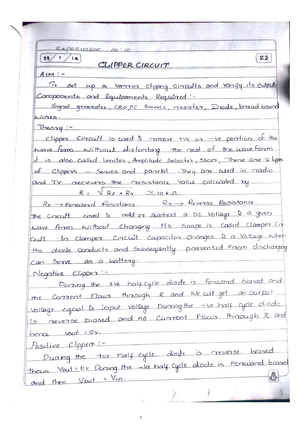 EXPERIMENT No: 10
29/1/14
22
CLIPPER CIRCUIT
AIM :-
To set up a various clipping circuits and verify its output
Components and Equipments Required :-
Signal generator, CRO, DC source, resistor, Diode, bread board
wires.
Theory :-
Clipper Circuit is used to remove +ve or -ve portion of the
wave form without distorbing the rest of the wave form
it is also called Limiter, Amplitude Selector, Slicer, There are 2 types
of Clippers - Series and parallel They are used in radio
and TV recievers the resistance Value calculated by
R = √RF × RR
RF → Forward Resistance RR → Reverse Resistance.
The Circuit used to add or subtract a DC Voltage to a given
wave form without Changing its Shape is called Clamper Cir-
cuit In Clamper Circuit Capacitor changes to a Voltage when
the diode conducts and subsequently prevented from discharging
can Serve as a battery.
Negative Clipper :-
During the +ve half cycle diode is forward biased and
the Current Flows through R and we will get an output
Voltage equal to input voltage During the -ve half cycle diode
is reverse biased and no Current Flows through R and
hence Vout = 0v.
Positive Clipper :-
During the +ve half cycle diode is reverse biased
Vout = 0v During the -ve half cycle diode is Forward biased
and then Vout = Vin